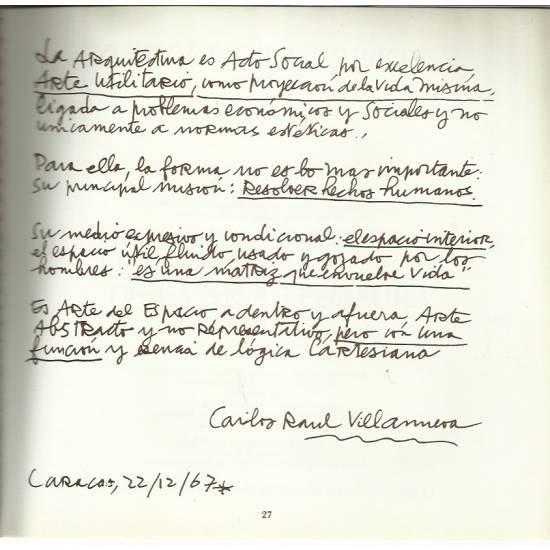 La Arquitectura es Acto Social por excelencia
Arte Utilitario, como proyección de la vida misma,
ligada a problemas económicos y sociales y no
únicamente a normas estéticas.,
Para ella, la forma no es lo mas importante:
su principal misión: Resolver hechos humanos.
Su medio expresivo y condicional: el espacio interior,
el espacio útil, fluido, usado y gozado por los
hombres: "es una matriz que envuelve vida"
Es Arte del Espacio adentro y afuera, Arte
Abstracto y no representativo, pero con una
función y esencia de lógica Cartesiana
Carlos Raul Villanueva
Caracas, 22/12/67*
27